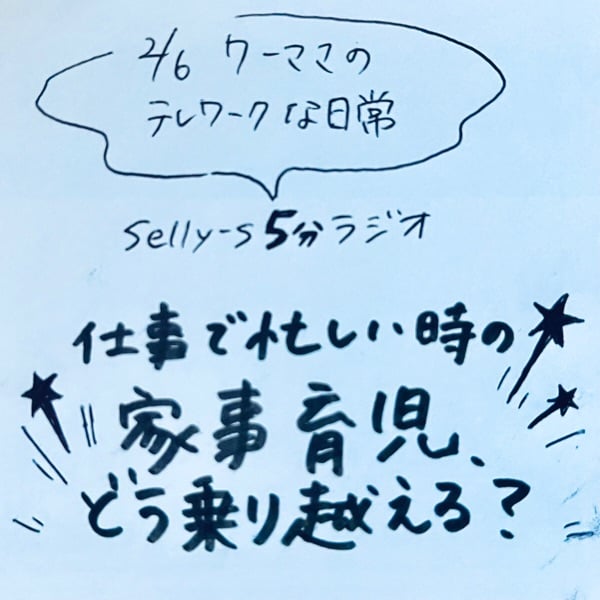 2/6 ワーママの
テレワークな日常
Selly-s 5分ラジオ
仕事で忙しい時の
家事育児、
どう乗り越える?